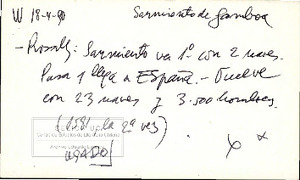 W 18-4-90 Sarmiento de Gamboa
- Rosselly: Sarmiento va 1º con 2 naves.
Pasa y llega a ESPAÑA. - Vuelve
con 23 naves y 3.500 hombres.
(1581, la 2ª vez)
USADO
x x